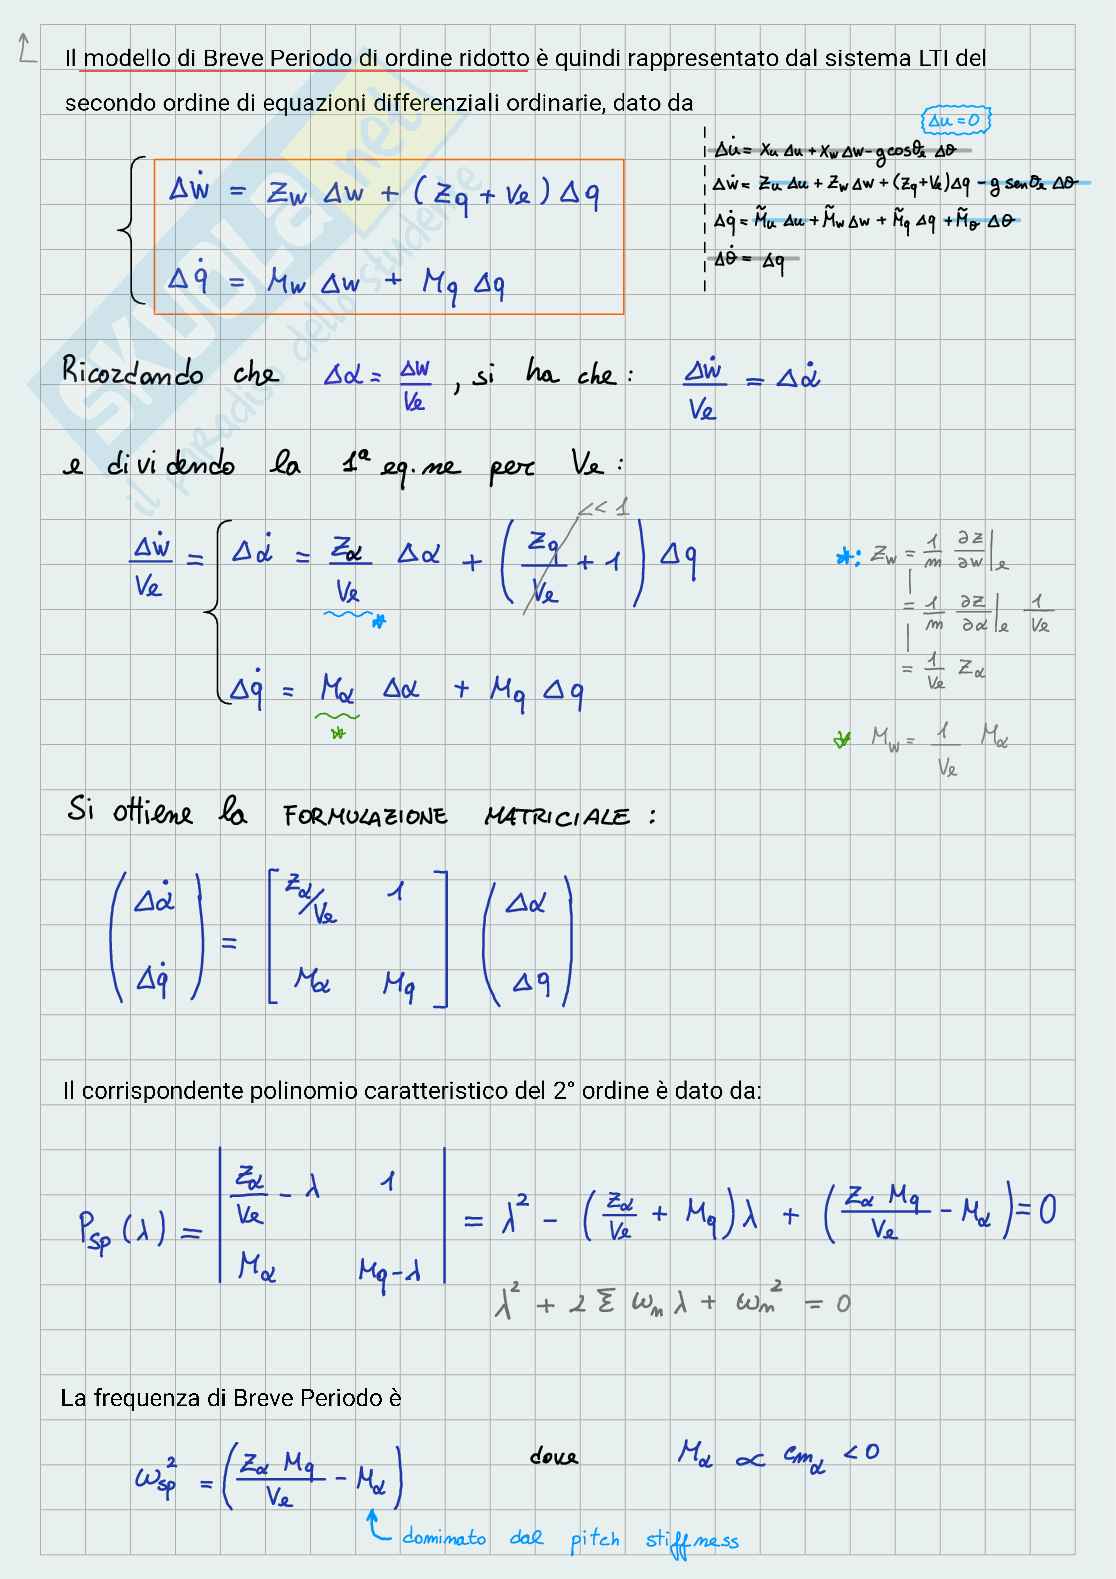 Il modello di Breve Periodo di ordine ridotto è quindi rappresentato dal sistema LTI del
secondo ordine di equazioni differenziali ordinarie, dato da
Δu = 0
Δu̇ = Xu Δu + Xw Δw - g cosθe Δθ
Δẇ = Zu Δu + Zw Δw + (Zq + Ve) Δq - g senθe Δθ
Δq̇ = M̃u Δu + M̃w Δw + M̃q Δq + M̃θ Δθ
Δθ̇ = Δq
Δẇ = Zw Δw + (Zq + Ve) Δq
Δq̇ = Mw Δw + Mq Δq
Ricordando che Δα = Δw/Ve , si ha che: Δẇ/Ve = Δα̇
e dividendo la 1ª eq.ne per Ve :
<< 1
Δẇ/Ve = Δα̇ = Zα/Ve Δα + (Zq/Ve + 1) Δq
*
Δq̇ = Mα Δα + Mq Δq
*
*: Zw = 1/m ∂Z/∂w|e
= 1/m ∂Z/∂α|e 1/Ve
= 1/Ve Zα
* Mw = 1/Ve Mα
Si ottiene la FORMULAZIONE MATRICIALE :
(Δα̇ Δq̇) = [Zα/Ve 1 Mα Mq] (Δα Δq)
Il corrispondente polinomio caratteristico del 2° ordine è dato da:
Psp(λ) = |Zα/Ve - λ 1 Mα Mq - λ| = λ² - (Zα/Ve + Mq) λ + (Zα Mq/Ve - Mα) = 0
λ² + 2 ξ ωn λ + ωn² = 0
La frequenza di Breve Periodo è
ωsp² = (Zα Mq/Ve - Mα) dove Mα ∝ Cmα < 0
dominato dal pitch stiffness
SKUOLA.net
il paradiso dello studente